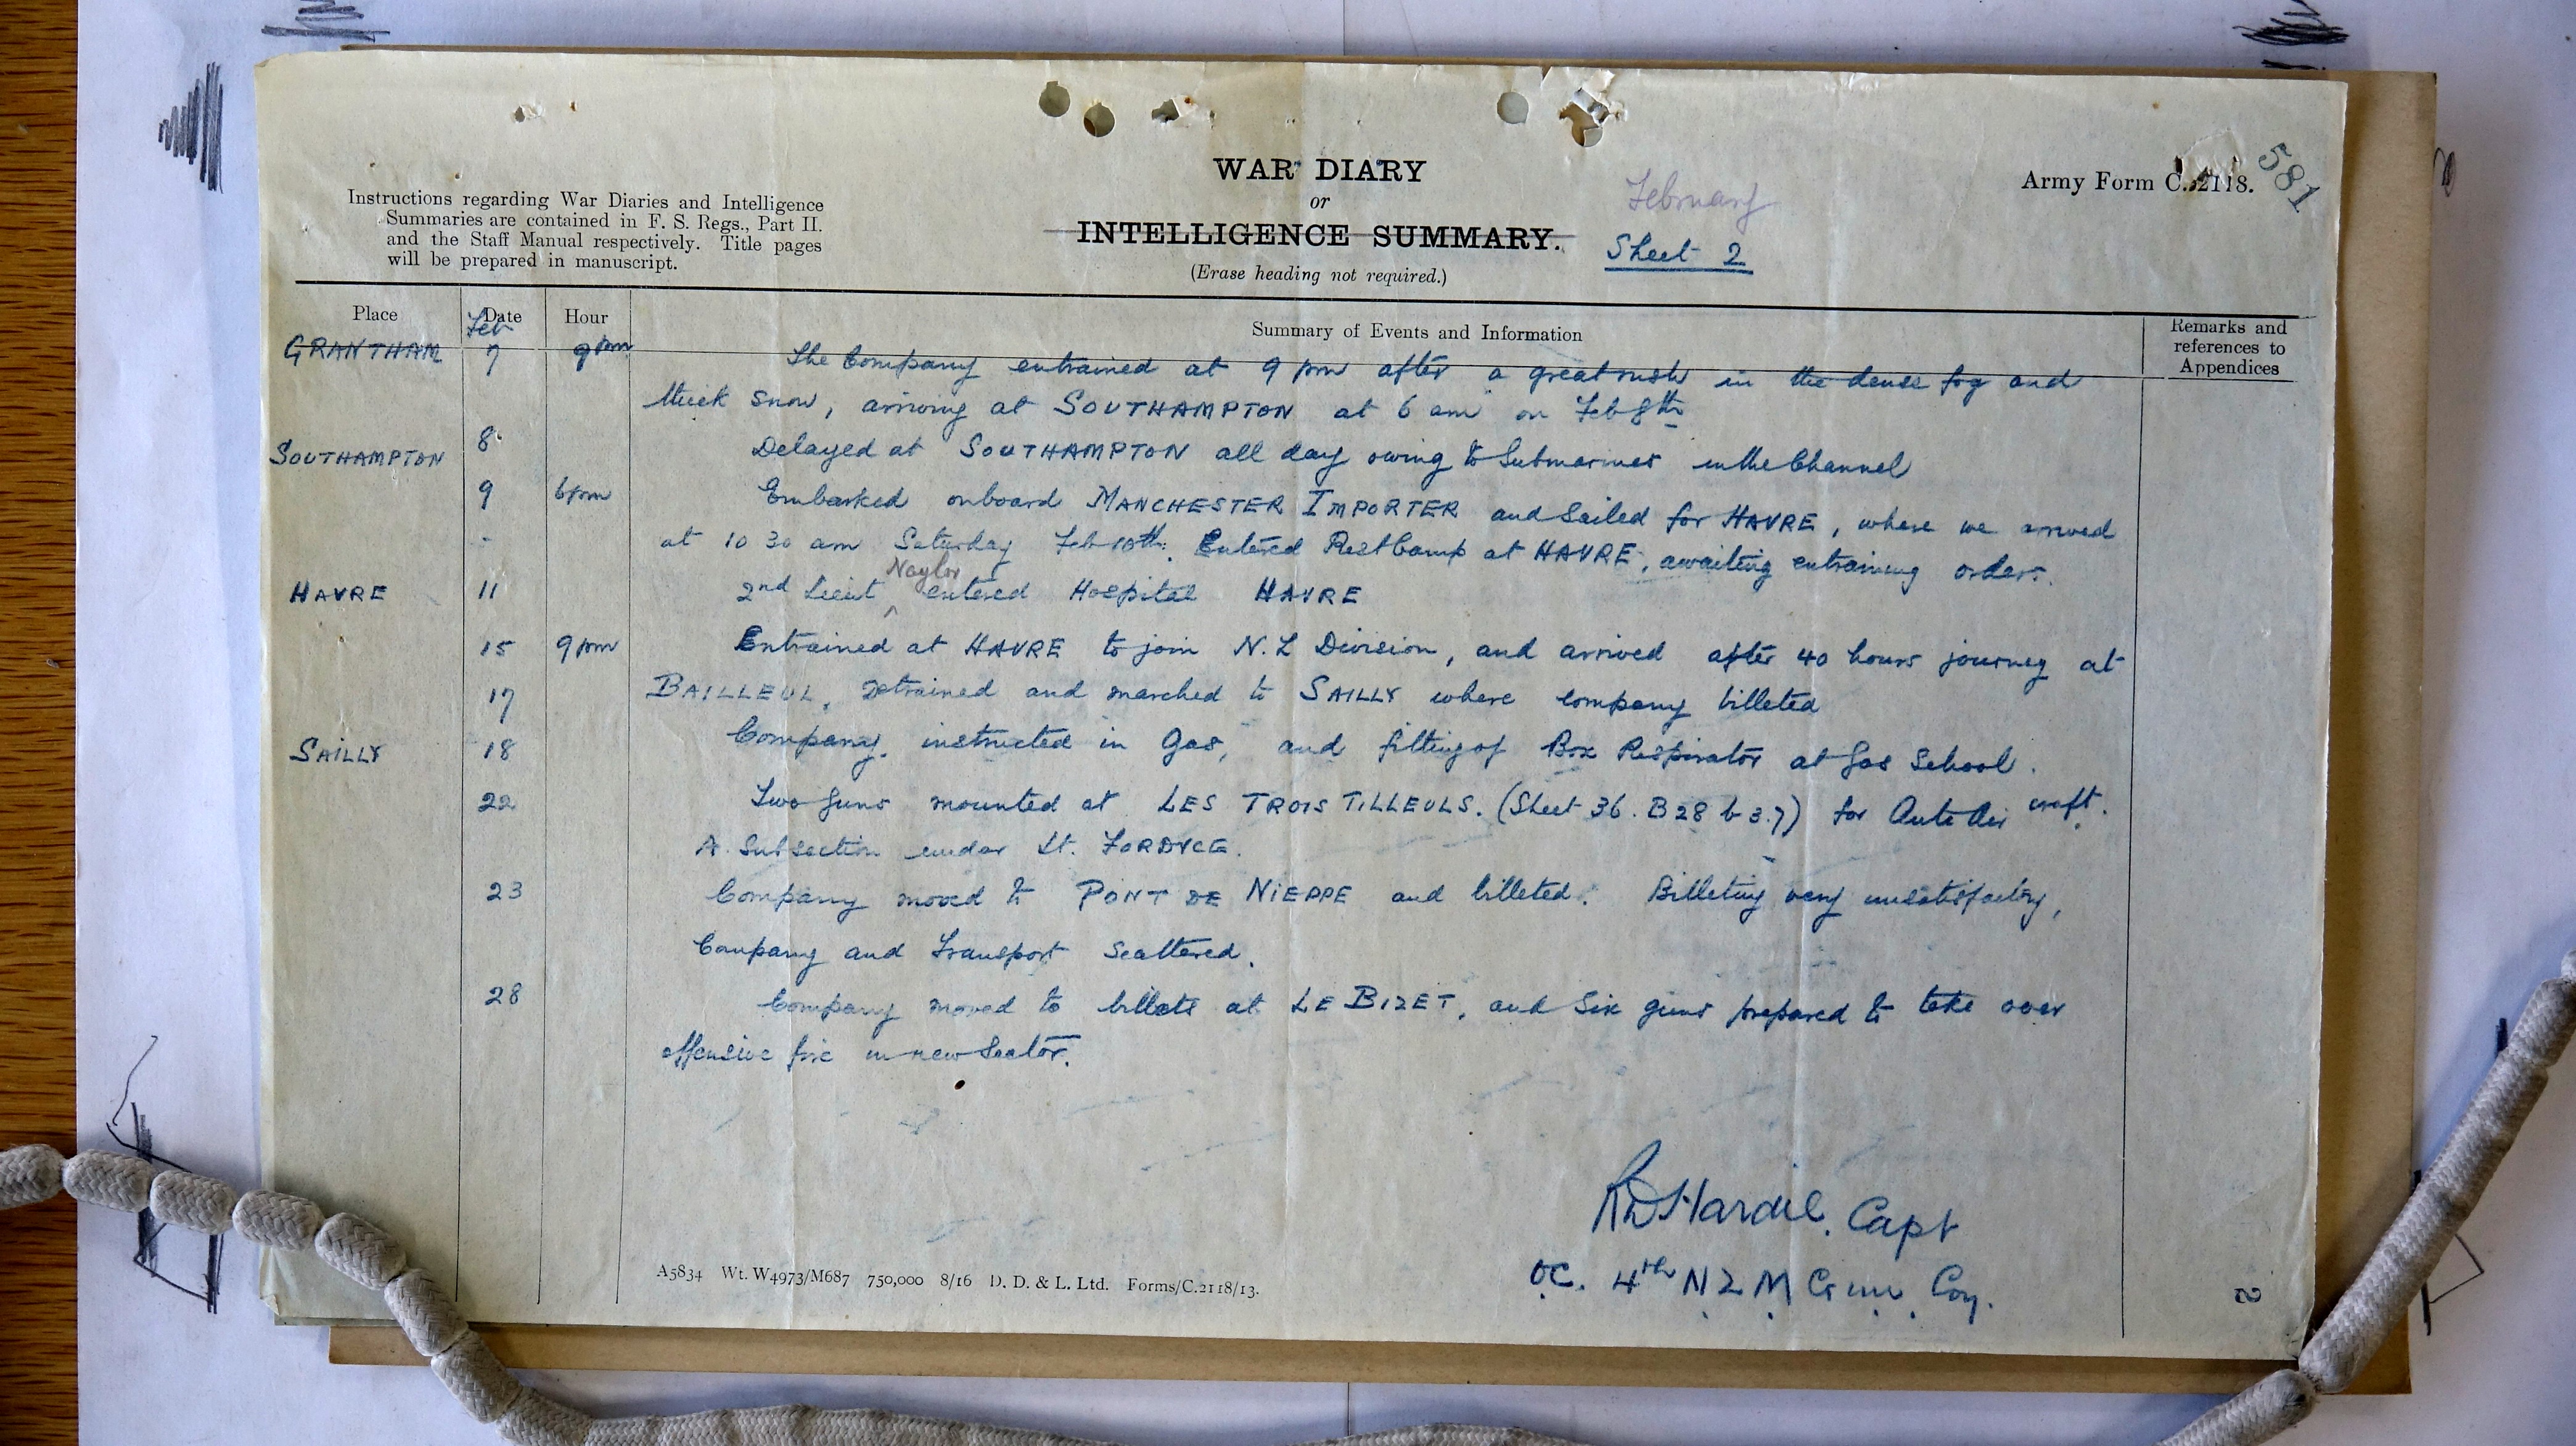 WAR DIARY
or
INTELLIGENCE SUMMARY.
(Erase heading not required.)
Instructions regarding War Diaries and Intelligence
Summaries are contained in F. S. Regs., Part II.
and the Staff Manual respectively. Title pages
will be prepared in manuscript.
February
Sheet 2
Army Form C. 2118.
581
Place Date Hour Summary of Events and Information Remarks and references to Appendices
Feb
GRANTHAM 7 9pm The Company entrained at 9 pm after a great rush in the dense fog and
thick snow, arriving at SOUTHAMPTON at 6 am on Feb 8th
SOUTHAMPTON 8 Delayed at SOUTHAMPTON all day owing to Submarines in the Channel
9 6pm Embarked onboard MANCHESTER IMPORTER and sailed for HAVRE, where we arrived
at 10 30 am Saturday Feb 10th. Entered Rest Camp at HAVRE, awaiting entraining orders.
HAVRE 11 2nd Lieut Naylor entered Hospital HAVRE
15 9pm Entrained at HAVRE to join N.Z Division, and arrived after 40 hours journey at
17 BAILLEUL, detrained and marched to SAILLY where company billeted
SAILLY 18 Company instructed in Gas, and fitting of Box Respirator at Gas School.
22 Two Guns mounted at LES TROIS TILLEULS. (Sheet 36. B28 b 3.7) for Anti Air craft.
A. Subsection under Lt. FORDYCE.
23 Company moved to PONT DE NIEPPE and billeted. Billeting very unsatisfactory,
Company and Transport Scattered.
28 Company moved to billets at LE BIZET, and Six guns prepared to take over
offensive fire in new Sector.
Hardie. Capt
OC. 4th N Z M Gun Coy.
A5834 Wt. W4973/M687 750,000 8/16 D. D. & L. Ltd. Forms/C.2118/13.
2